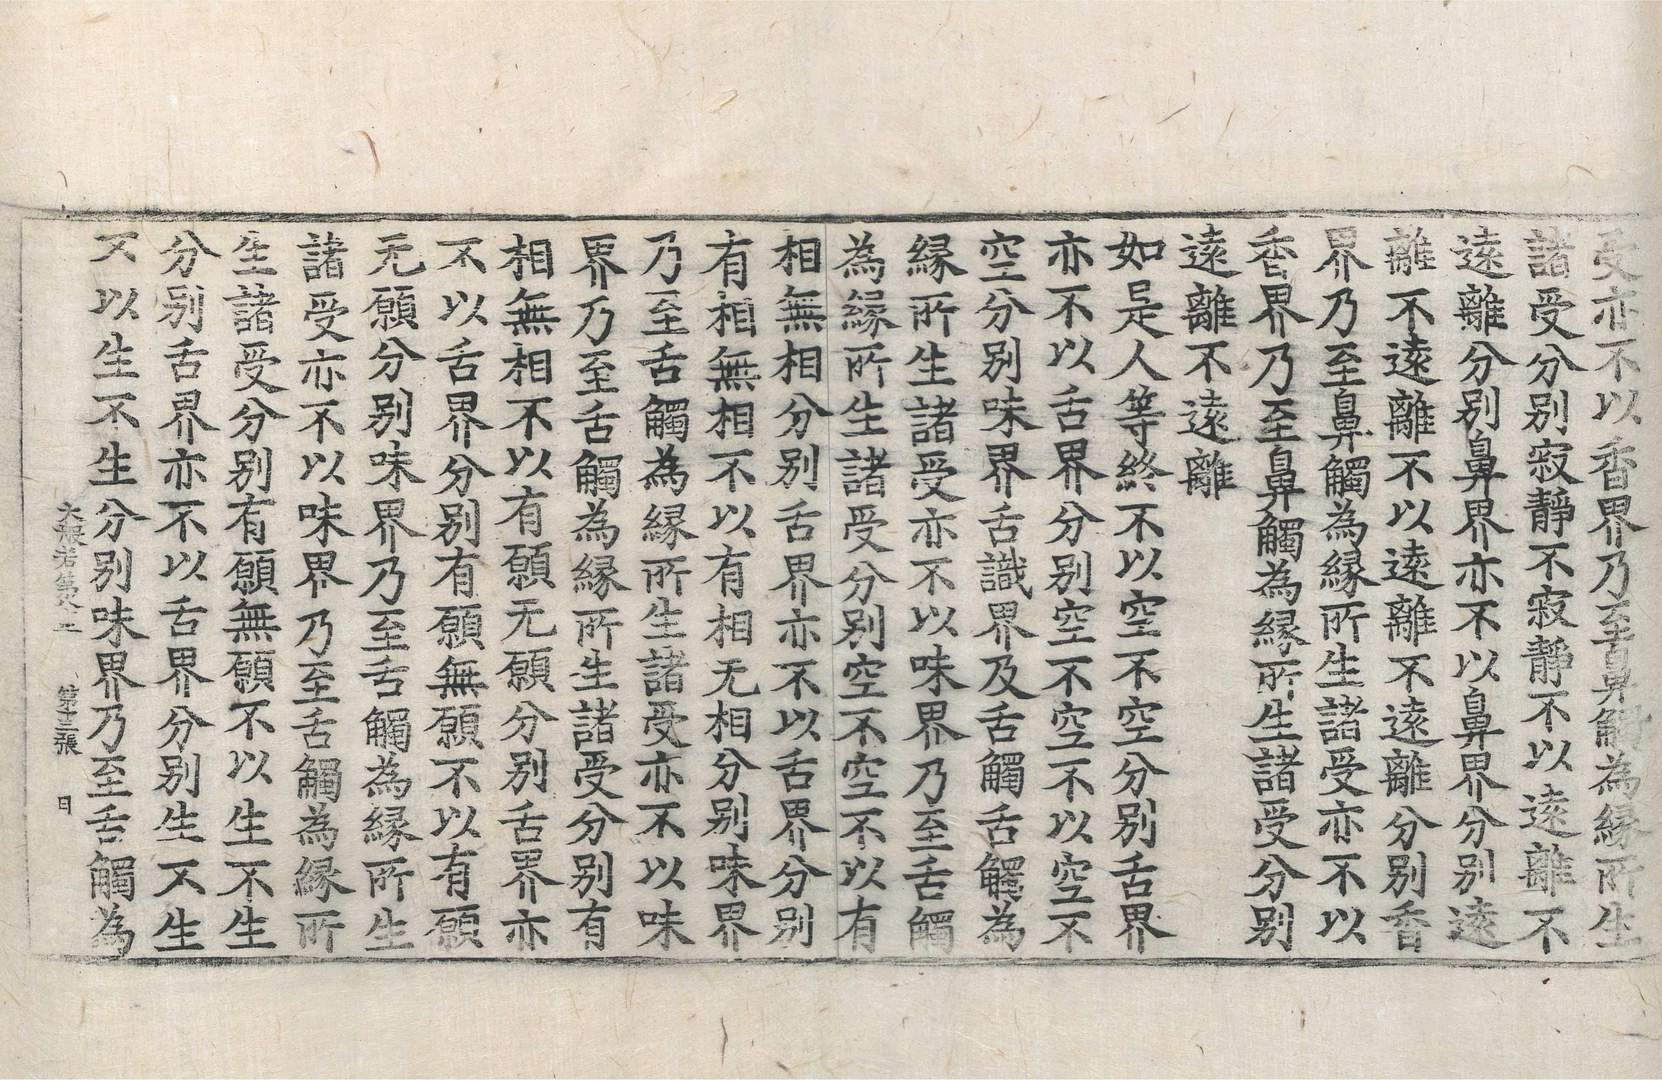 受亦不以香界乃至鼻觸為縁所生
諸受分別寂靜不寂靜不以遠離不
遠離分別鼻界亦不以鼻界分別遠
離不遠離不以遠離不遠離分別香
界乃至鼻觸為縁所生諸受亦不以
香界乃至鼻觸為縁所生諸受分別
遠離不遠離
如是人等終不以空不空分別舌界
亦不以舌界分別空不空不以空不
空分別味界舌識界及舌觸舌觸為
縁所生諸受亦不以味界乃至舌觸
為縁所生諸受分別空不空不以有
相無相分別舌界亦不以舌界分別
有相無相不以有相无相分別味界
乃至舌觸為縁所生諸受亦不以味
界乃至舌觸為縁所生諸受分別有
相無相不以有願无願分別舌界亦
不以舌界分別有願無願不以有願
无願分別味界乃至舌觸為縁所生
諸受亦不以味界乃至舌觸為縁所
生諸受分別有願無願不以生不生
分別舌界亦不以舌界分別生不生
不以生不生分別味界乃至舌觸為
大般若第八二 第十三張 日